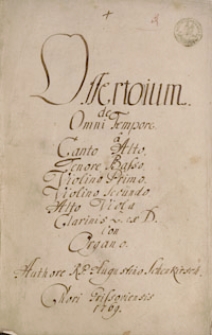 Offertorium.
de
Omni Tempore
â
Canto Alto,
Tenore Basso
Violino Primo,
Violino Secundo,
Alto Viola
Clarinis ex D.
Con
Organo.
Authore R.D. Augustino
Chori
1769.